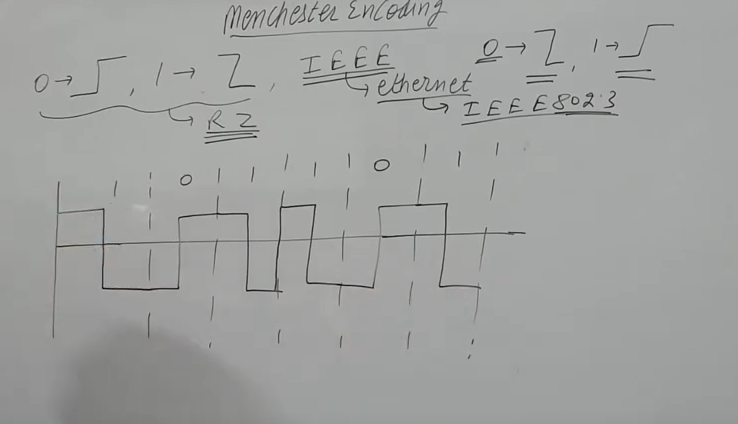 Menchester Encoding
0→ , 1→ , IEEE 0→ , 1→
ethernet
IEEE802.3
RZ
1 0 1 1 0 1